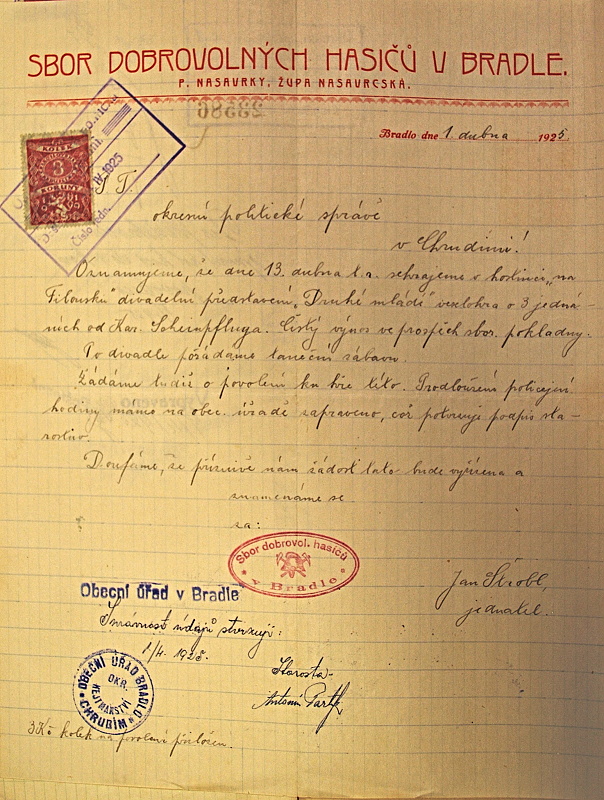 SBOR DOBROVOLNÝCH HASIČŮ V BRADLE.
P. NASAVRKY, ŽUPA NASAVRCSKÁ.
22580
Bradlo dne 1. dubna 1925.
KOLEK
3
KORUNY
IV. 1925
Číslo jedn.
S T.
okresní politické správě
v Chrudimi!
Oznamujeme, že dne 13. dubna t.r. sehrajeme v hostinci „na
Filousku" divadelní představení „Druhé mládí" veselohra o 3 jedná-
ních od Kar. Scheinpfluga. Čistý výnos ve prospěch sbor. pokladny.
Po divadle pořádáme taneční zábavu.
Žádáme tudíž o povolení ku hře této. Prodloužení policejní
hodiny máme na obec. úřadě zapraveno, což potvrzuje podpis sta-
rostův.
Doufáme, že příznivě nám žádost tato bude vyřízena a
znamenáme se
za:
Sbor dobrovol. hasičů
v Bradle
Jan Štrobl,
jednatel.
Obecní úřad v Bradle
Správnost údajů stvrzuji:
1/4. 1925.
Starosta
Antonín
OBECNÍ ÚŘAD BRADLO
OKR.
HEJTMANSTVÍ
CHRUDIM
3 Kč kolek na povolení přiložen.